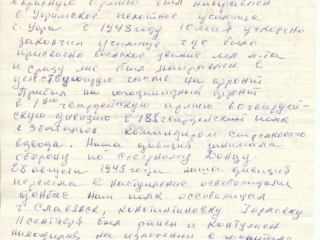 в Красную Армию был направлен
в Уфимское пехотное училище
г. Уфа в 1943 году 10 мая ускорено
закончил училище где было
присвоено военское звание мл. л-та
и сразу же был направлен в
действующую часть на фронт
Прибыл на юго западный фронт
в 1 гвардейскую армию гвардей-
скую дивизию в 188 гвардейский полк
в 3 батальон командиром стрелкового
взвода. Наша дивизия занимала
оборону по Северному Донцу
28 августа 1943 года наша дивизия
перешла в наступление освобождали
Донбас наш полк освободил
г. Славянск, Константиновку, Горловку
11 сентября был ранен и контужен
находился на излечении в госпитале